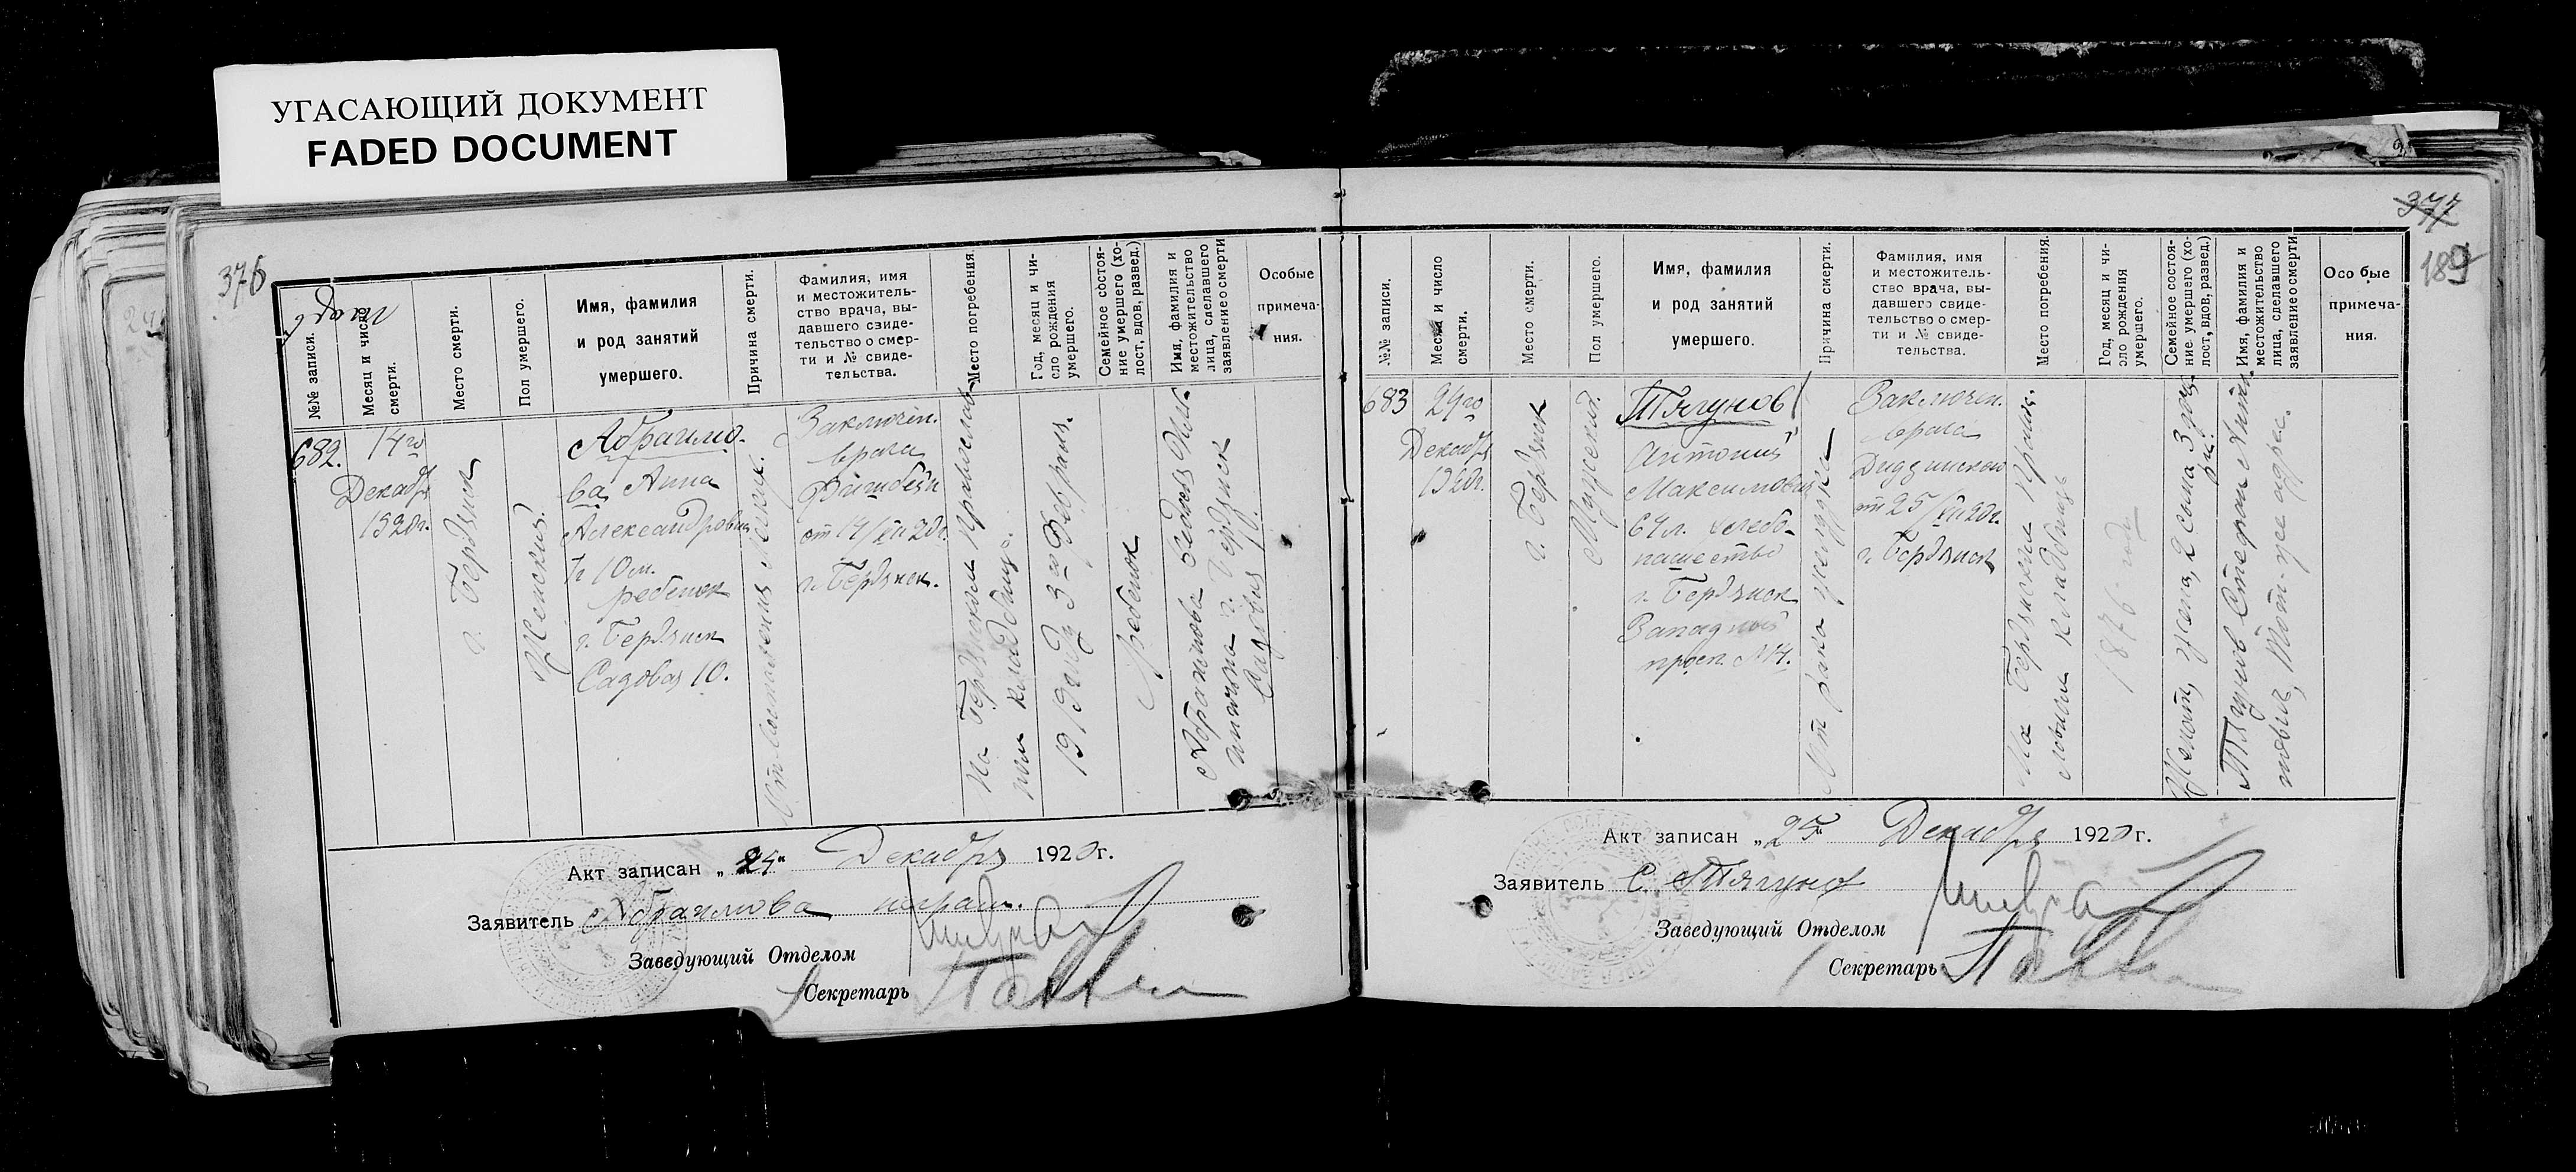 УГАСАЮЩИЙ ДОКУМЕНТ
FADED DOCUMENT
376
№№ записи.
Месяц и число
смерти.
Место смерти.
Пол умершего.
Имя, фамилия
и род занятий
умершего.
Причина смерти.
Фамилия, имя
и местожитель-
ство врача, вы-
давшего свиде-
тельство о смер-
ти и № свиде-
тельства.
Место погребения.
Год, месяц и чи-
сло рождения
умершего.
Семейное состоя-
ние умершего (хо-
лост, вдов, развед.)
Имя, фамилия и
местожительство
лица, сделавшего
заявление о смерти
Особые
примеча-
ния.
682.
14го
Декабр
1920г.
г. Бердянск
Женский.
Абраимо-
ва Анна
Александровна
1г 10м.
ребенок
г. Бердянск
Садовая 10.
От воспаления легких.
Заключен.
врача
от 14/XII 20г.
г. Бердянск.
На Бердянском Православ-
ном кладбище.
1919 году 3го Февраля.
Ребенок
Абраимова
г. Бердянск
Садовая 10.
Акт записан „24" Декабря 1920г.
Заявитель Абраимова неграм.
Заведующий Отделом
Секретарь
377
189
№№ записи.
Месяц и число
смерти.
Место смерти.
Пол умершего.
Имя, фамилия
и род занятий
умершего.
Причина смерти.
Фамилия, имя
и местожитель-
ство врача, вы-
давшего свиде-
тельство о смер-
ти и № свиде-
тельства.
Место погребения.
Год, месяц и чи-
сло рождения
умершего.
Семейное состоя-
ние умершего (хо-
лост, вдов, развед.)
Имя, фамилия и
местожительство
лица, сделавшего
заявление о смерти
Особые
примеча-
ния.
683
24го
Декабр
1920г.
г. Бердянск
Мужской.
Тягунов
Антоний
Максимович
64л. хлебо-
пашество
г. Бердянск
Западный
просп. №14.
От рака желудка
Заключен.
врача
от 25/XII 20г.
г. Бердянск
На Бердянском Правос-
лавном кладбище
1876 году
Женат, жена, 2 сына 3 доч.
Тягунов Стефан Анто-
нович, Тот-же адрес.
Акт записан „25" Декабря 1920г.
Заявитель С. Тягунов
Заведующий Отделом
Секретарь